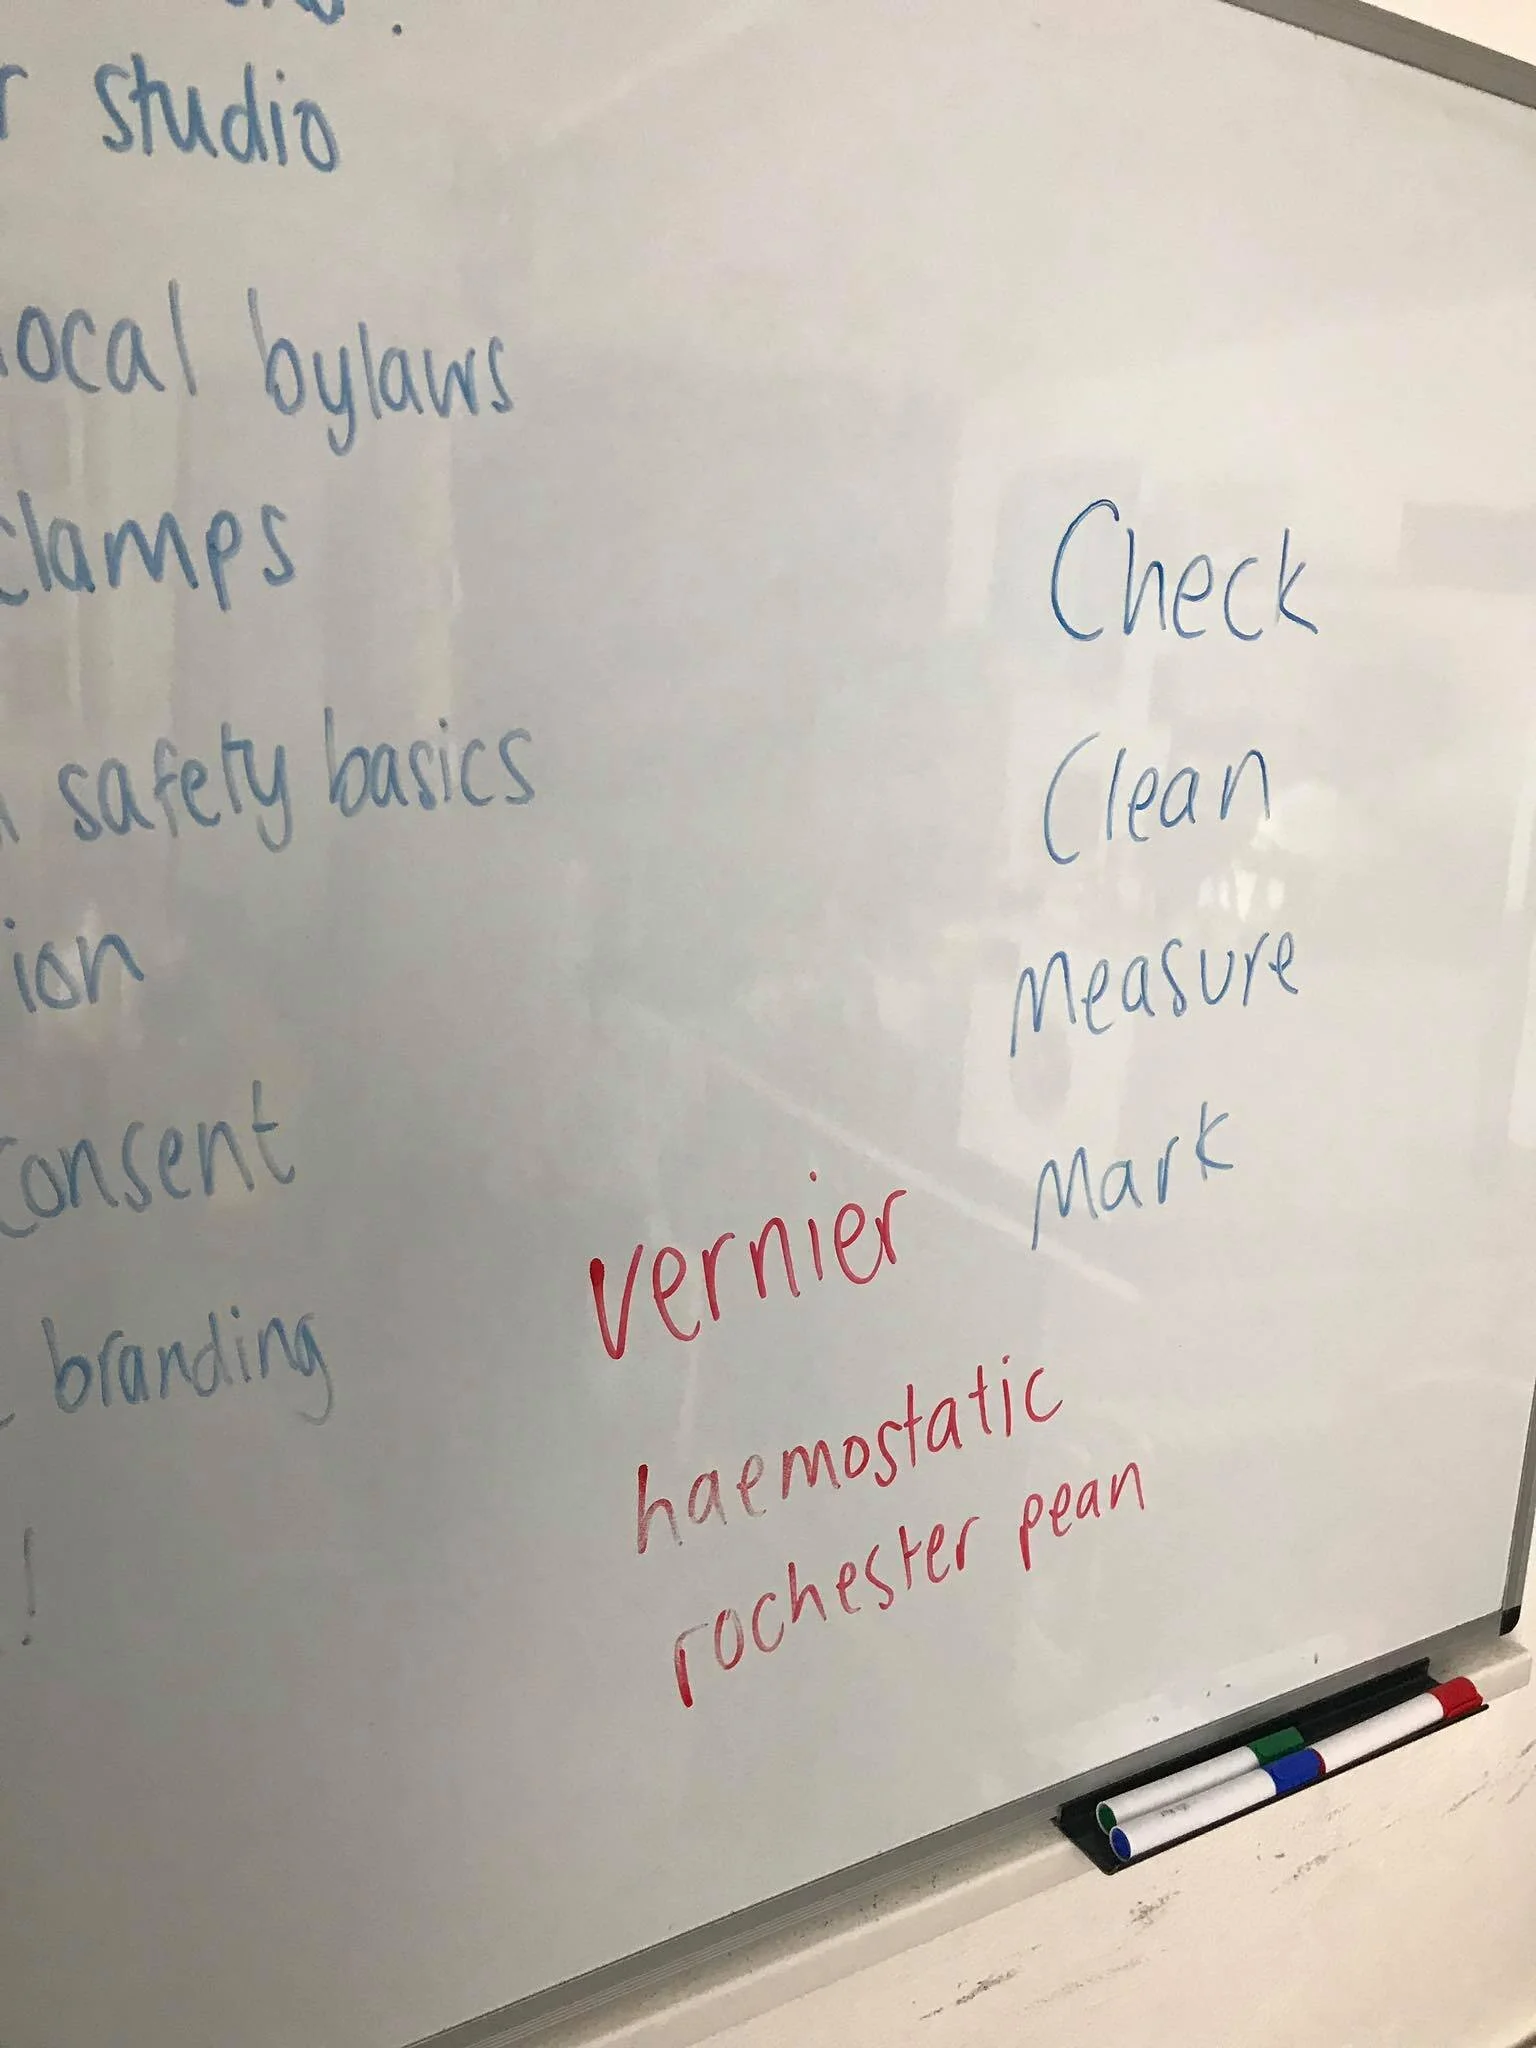 studio
local bylaws
clamps
safety basics
consent
branding
!
Check
Clean
Measure
Mark
vernier
haemostatic
rochester pean